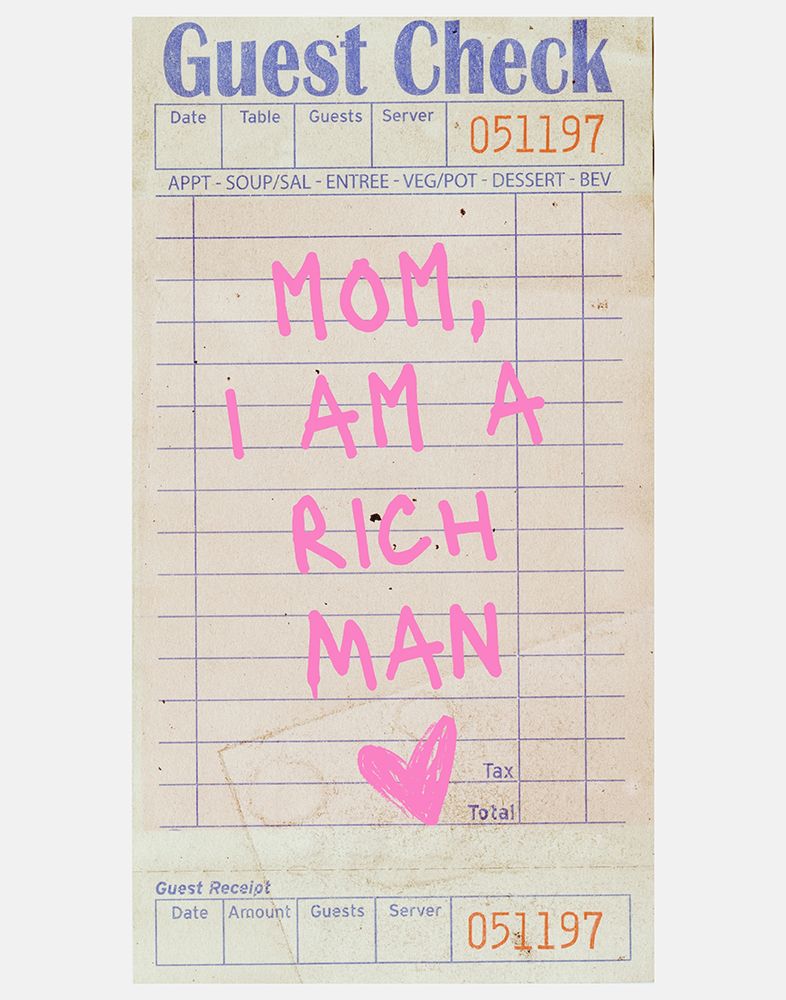 Guest Check
Date Table Guests Server 051197
APPT - SOUP/SAL - ENTREE - VEG/POT - DESSERT - BEV
MOM,
I AM A
RICH
MAN
Tax
Total
Guest Receipt
Date Amount Guests Server 051197